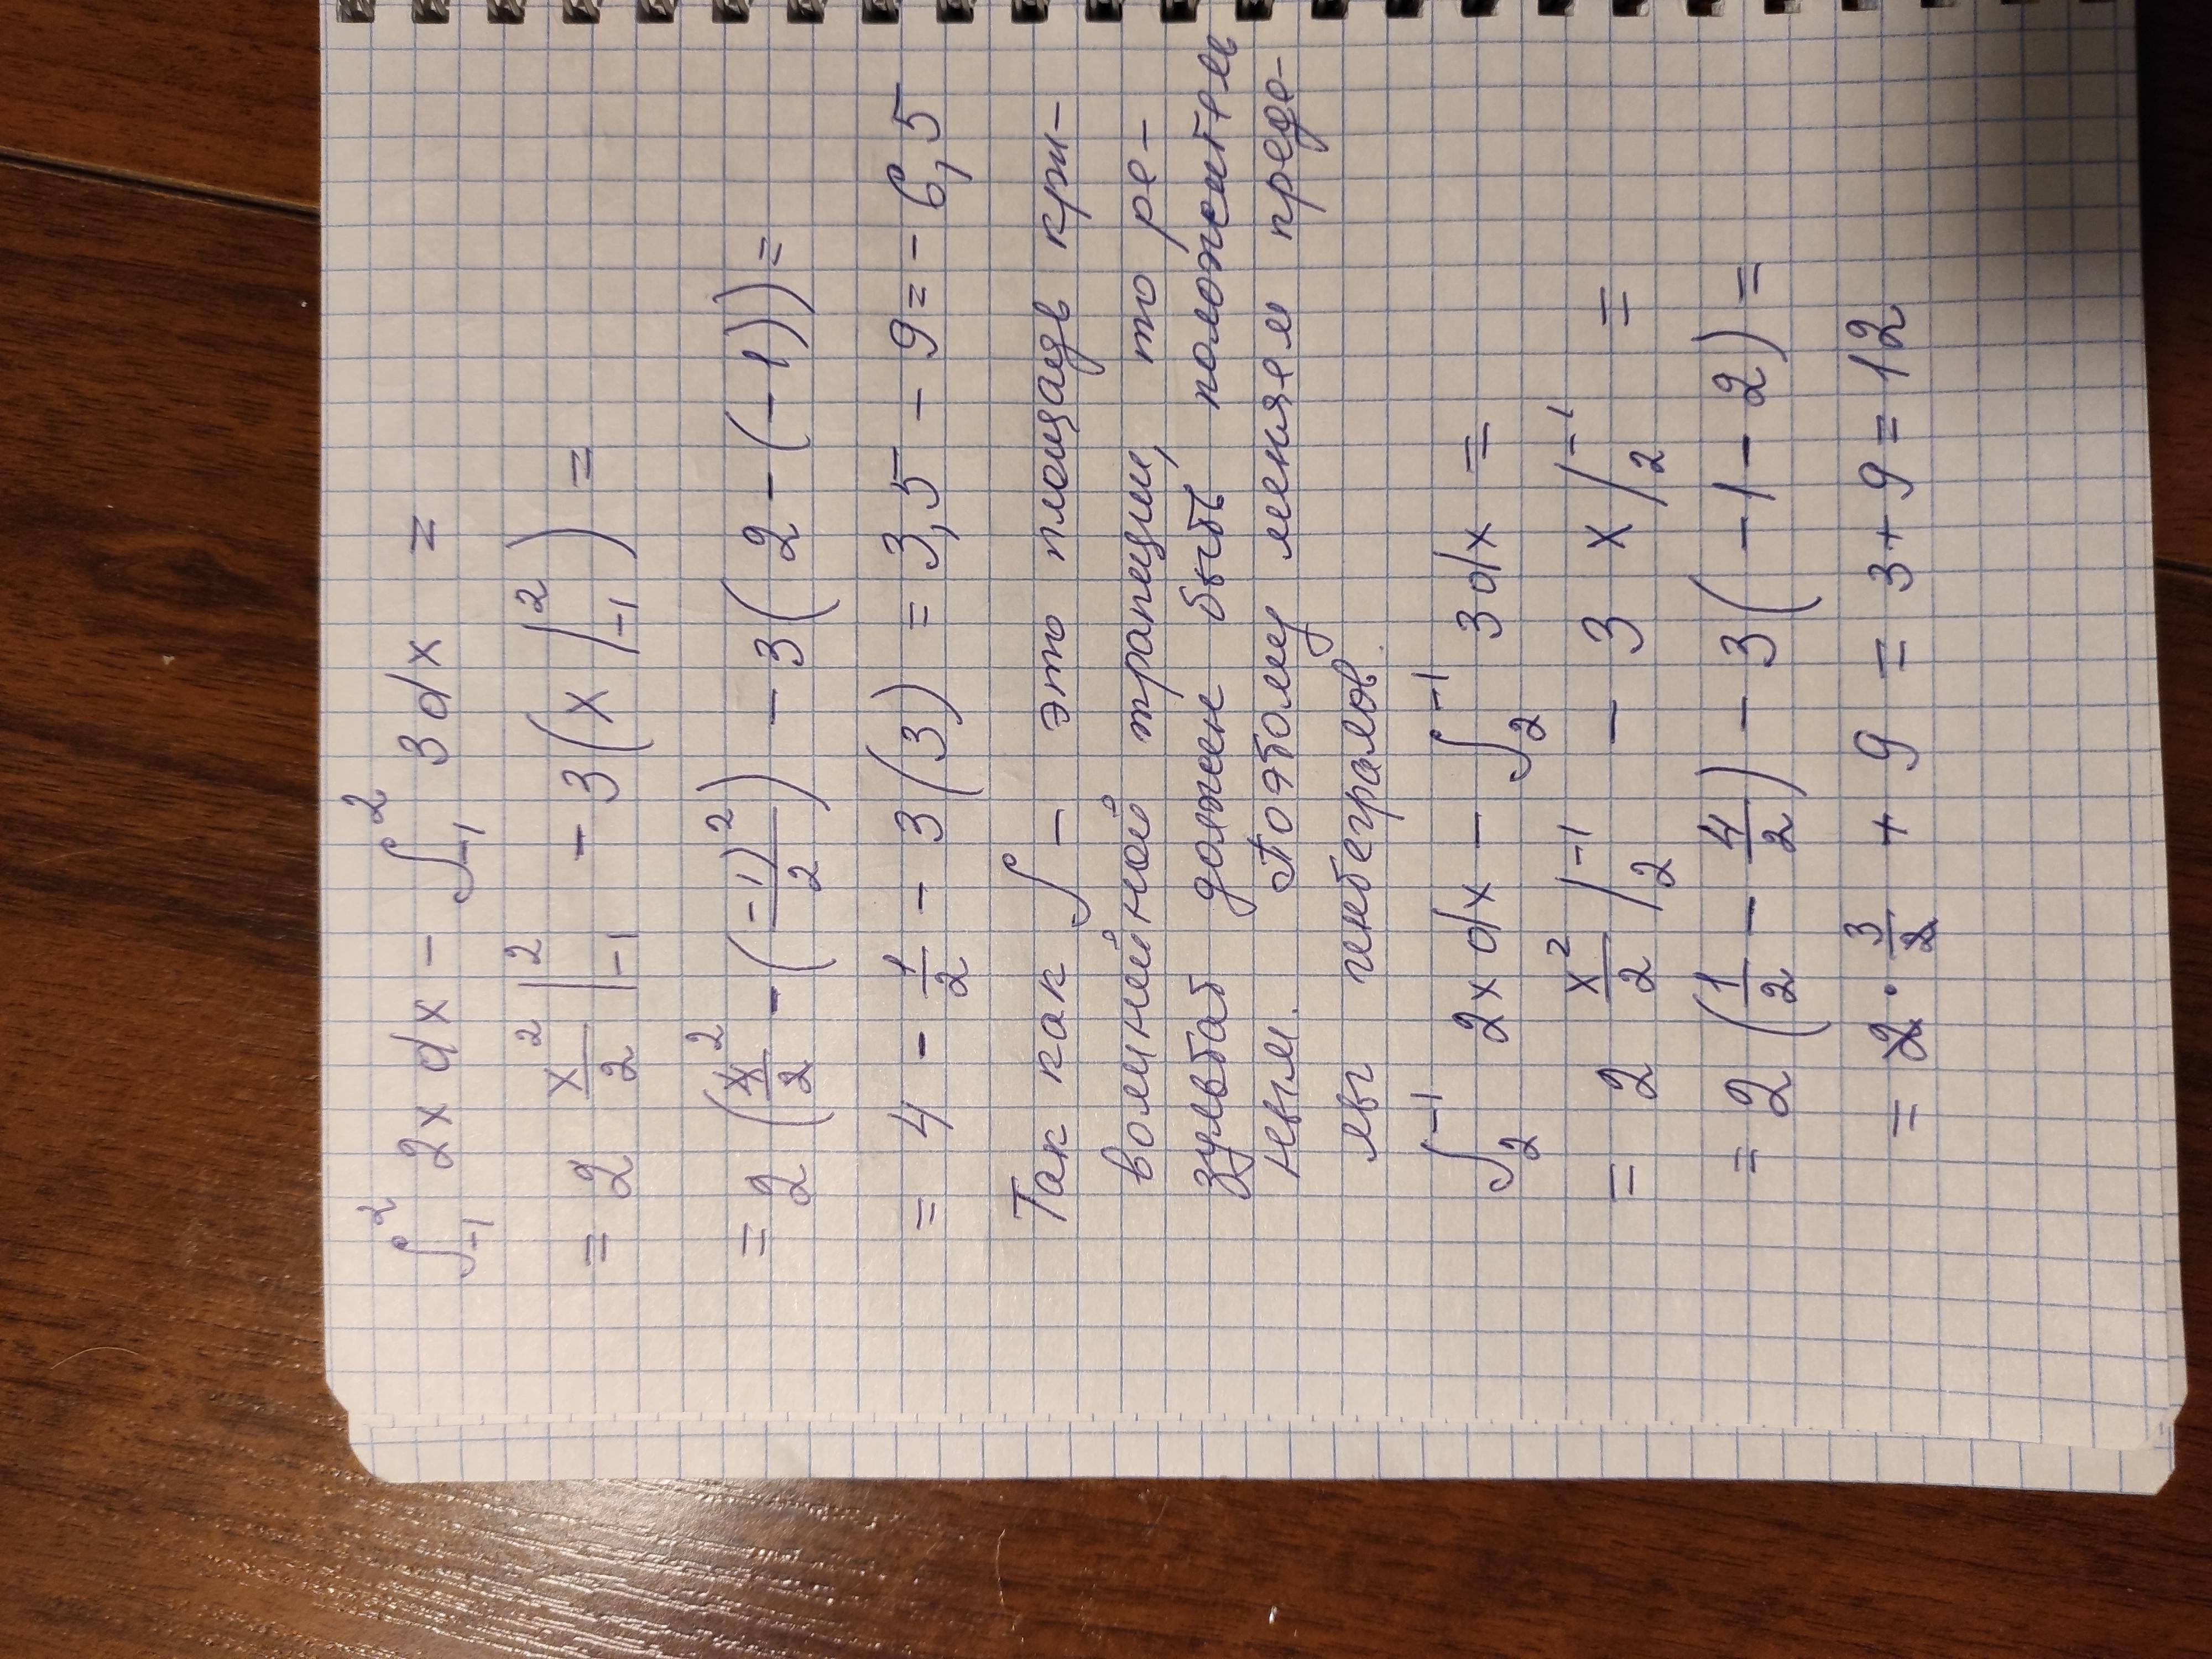 ∫₋₁² 2x dx - ∫₋₁² 3dx =
= 2 x²/2 |₋₁² - 3(x |₋₁²) =
= 2 (2²/2 - ((-1)²/2)) - 3(2-(-1)) =
= 4 - 1/2 - 3(3) = 3,5 - 9 = - 6,5
Так как ∫ - это площадь кри-
волинейной трапеции, то ре-
зультат должен быть положитель
ным. Поэтому меняем преде-
лы интегралов.
∫₂⁻¹ 2x dx - ∫₂⁻¹ 3dx =
= 2 x²/2 |₂⁻¹ - 3 x |₂⁻¹ =
= 2 (1/2 - 4/2) - 3(-1-2) =
= 2 · 3/2 + 9 = 3 + 9 = 12